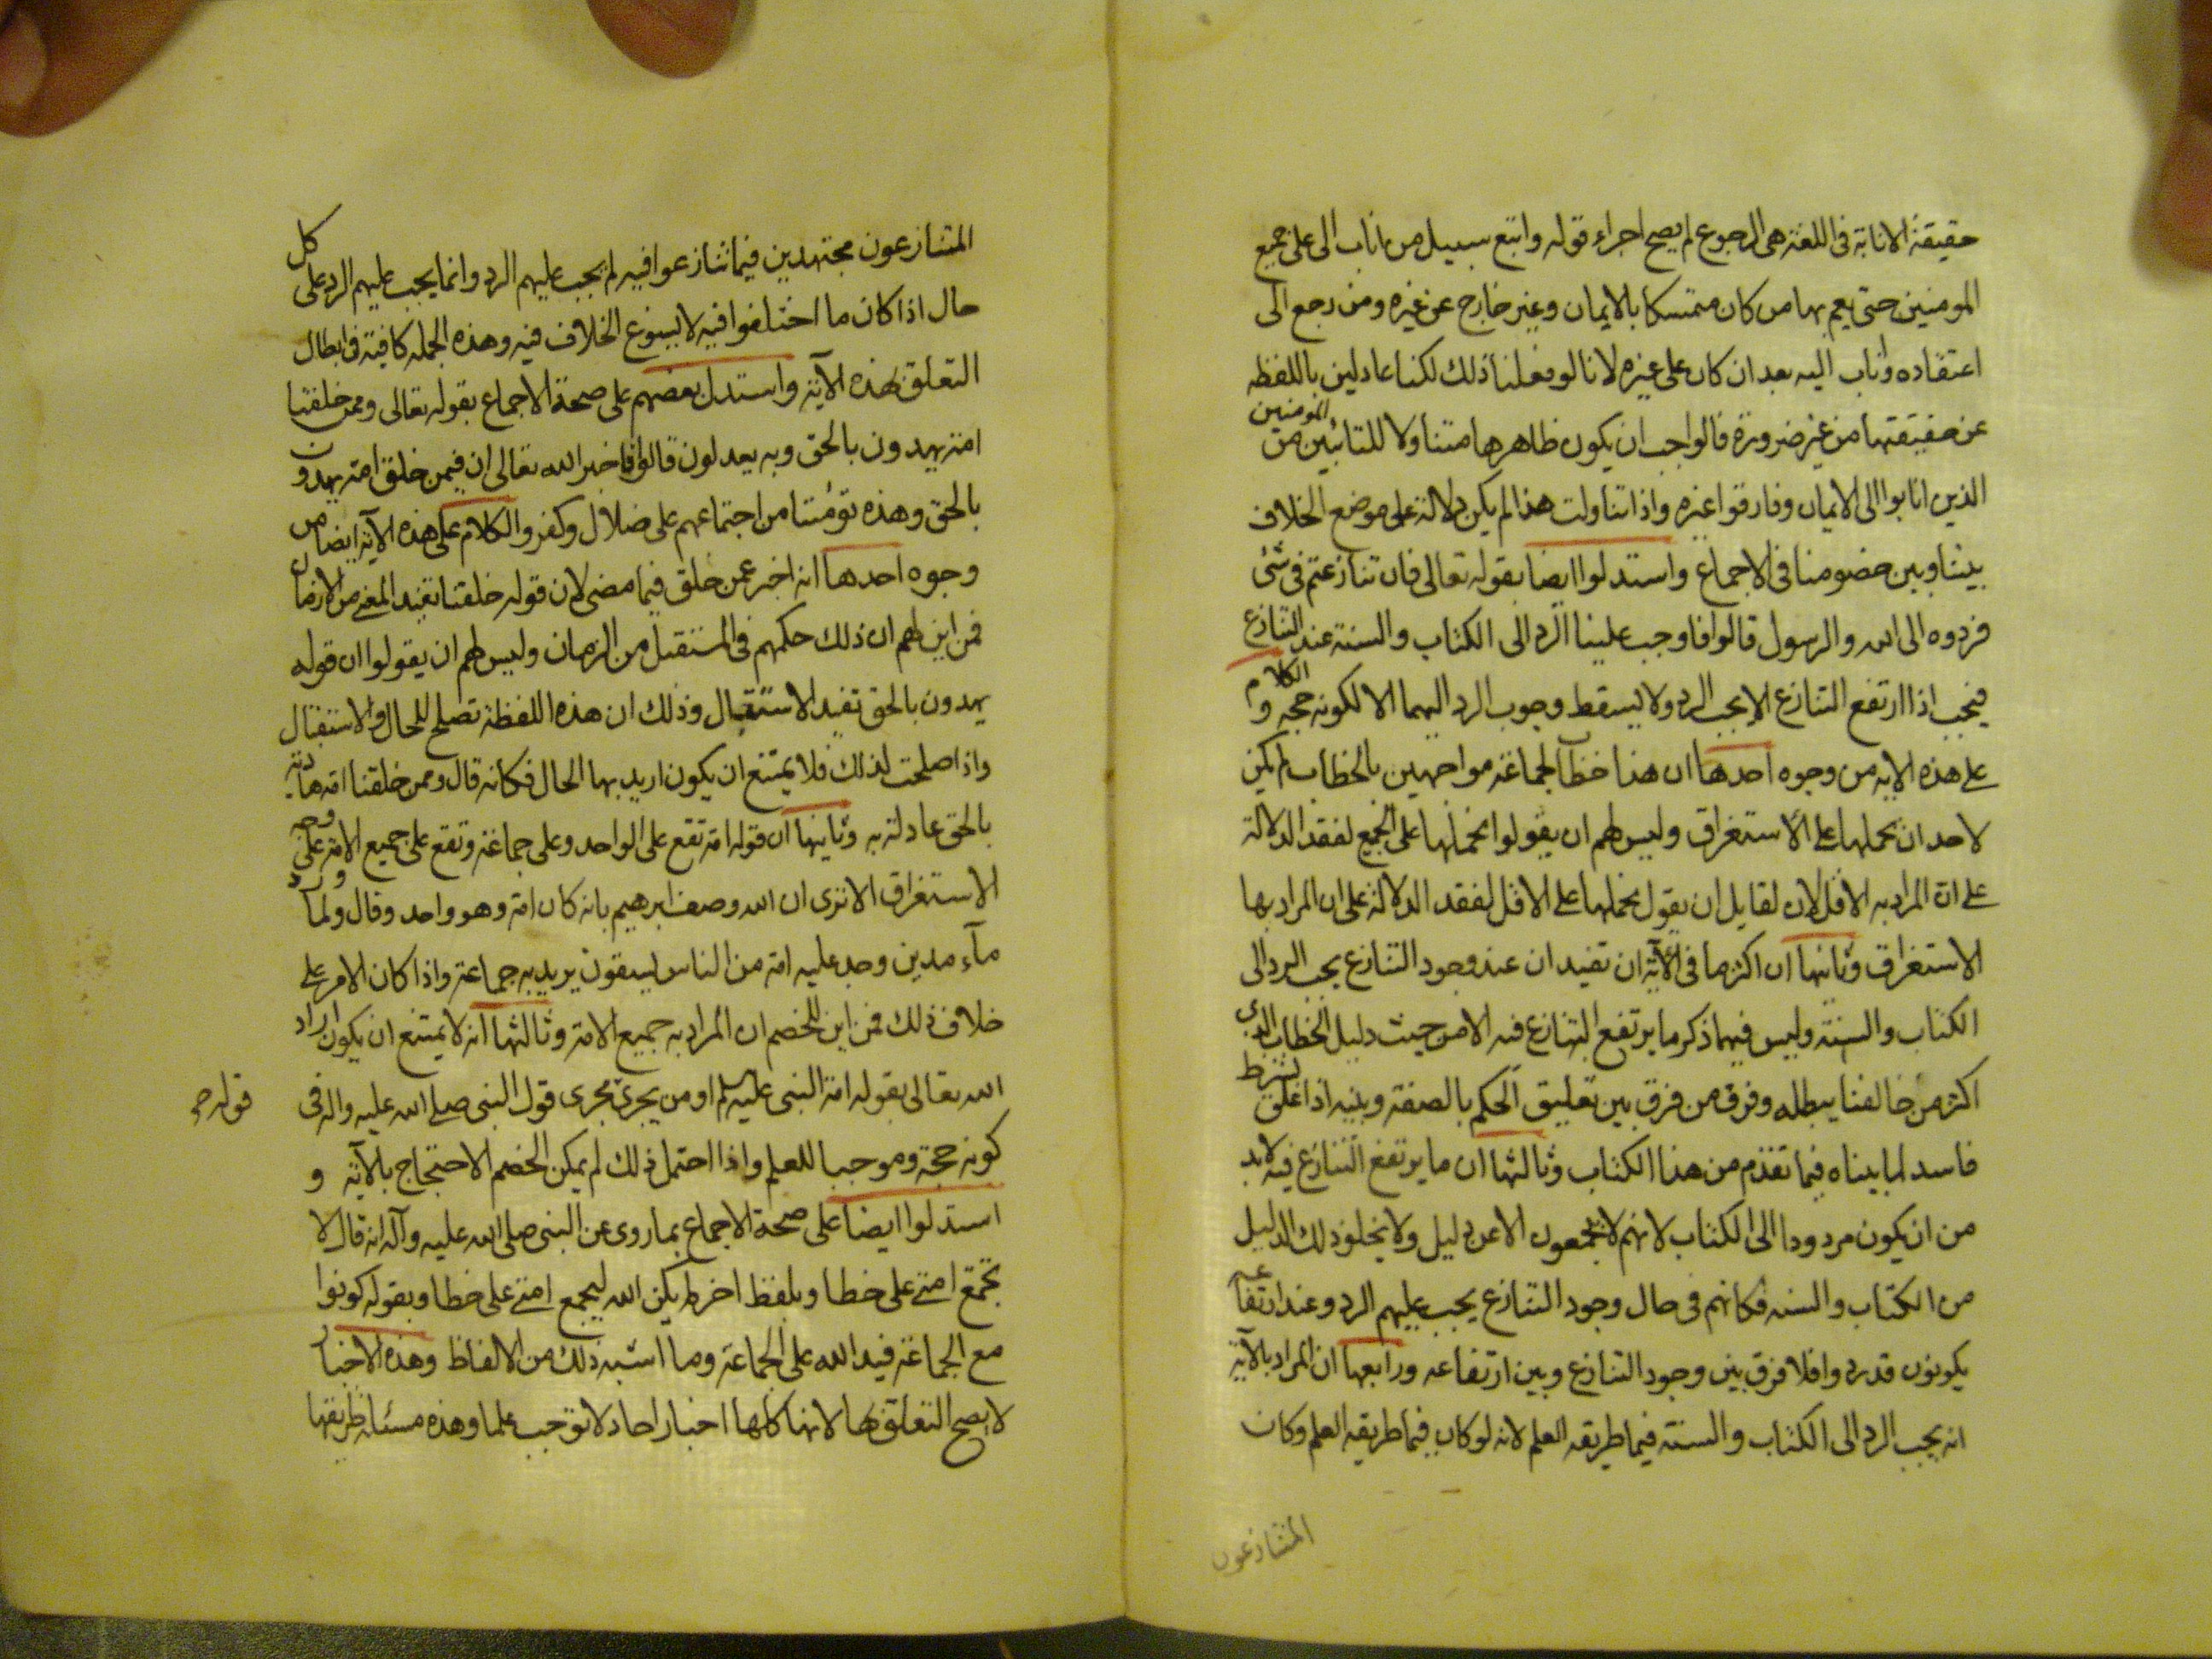 حقيقة الانابة فى اللغة هى الرجوع لم يصح اجراء قوله واتبع سبيل من اناب الى على جميع
المومنين حتى يعم بها من كان متمسكا بالايمان وغير خارج عن غيره ومن رجع الى
اعتقاده واناب اليه بعد ان كان على غيره لانا لو فعلنا ذلك لكنا عادلين باللفظه
عن حقيقتها من غير ضرورة فالواجب ان يكون ظاهرها متناولا للتائبين من المومنين
الذين انابوا الى الايمان وفارقوا غيره واذا تناولت هذا لم يكن دلالة على موضع الخلاف
بيننا وبين خصومنا فى الاجماع واستدلوا ايضا بقوله تعالى فان تنازعتم فى شئ
فردوه الى الله والرسول قالوا فاوجب علينا الرد الى الكتاب والسنة عند التنازع
فيجب اذا ارتفع التنازع الا يجب الرد ولا يسقط وجوب الرد اليهما الا لكونه حجه والكلام
على هذه الايه من وجوه احدها ان هذا خطاب لجماعة مواجهين بالخطاب لم يكن
لاحد ان يحملها على الاستغراق وليس لهم ان يقولوا نحملها على الجميع لفقد الدلالة
على ان المراد به الاقل لان لقايل ان يقول نحملها على الاقل لفقد الدلالة على ان المراد بها
الاستغراق وثانيها ان اكثر ما فى الآية ان تفيد ان عند وجود التنازع يجب الرد الى
الكتاب والسنة وليس فيها ذكر ما يرتفع التنازع فيه الا من حيث دليل الخطاب الذى
اكثر من خالفنا يبطله وفرق من فرق بين تعليق الحكم بالصفة وبينه اذا علق بشرط
فاسد لما بيناه فيما تقدم من هذا الكتاب وثالثها ان ما يرتفع التنازع فيه لا بد
من ان يكون مردودا الى الكتاب لانهم لا يجمعون الا عن دليل ولا يخلو ذلك الدليل
من الكتاب والسنه فكانهم فى حال وجود التنازع يجب عليهم الرد وعند ارتفاعه
يكونون قد ردوا فلا فرق بين وجود التنازع وبين ارتفاعه ورابعها ان المراد بالآية
انه يجب الرد الى الكتاب والسنة فيما طريقه العلم لانه لو كان فيما طريقه العلم وكان
المتنازعون
المتنازعون مجتهدين فيما تنازعوا فيه لم يجب عليهم الرد وانما يجب عليهم الرد على كل
حال اذا كان ما اختلفوا فيه لا يسوغ الخلاف فيه وهذه الجمله كافية فى ابطال
التعلق بهذه الآية واستدل بعضهم على صحة الاجماع بقوله تعالى وممن خلقنا
امة يهدون بالحق وبه يعدلون قالوا فاخبر الله تعالى ان فيمن خلق امة يهدون
بالحق وهذه تؤمننا من اجتماعهم على ضلال وكفر والكلام على هذه الآية ايضا من
وجوه احدها انه اخبر عمن خلق فيما مضى لان قوله خلقنا تفيد المضى من الازمان
فمن اين لهم ان ذلك حكمهم فى المستقبل من الزمان وليس لهم ان يقولوا ان قوله
يهدون بالحق تفيد الاستقبال وذلك ان هذه اللفظة تصلح للحال والاستقبال
واذا صلحت لذلك فلا يمتنع ان يكون اريد بها الحال فكانه قال وممن خلقنا امة هادية
بالحق عادلة به وثانيها ان قوله امة تقع على الواحد وعلى جماعة وتقع على جميع الامة على وجه
الاستغراق الا ترى ان الله وصف ابرهيم بانه كان امة وهو واحد وقال ولما ورد
مآء مدين وجد عليه امة من الناس يسقون يريد به جماعة واذا كان الامر على
خلاف ذلك فمن اين للخصم ان المراد به جميع الامة وثالثها انه لا يمتنع ان يكون اراد
الله تعالى بقوله امة النبى عليه السلم او من يجرى مجرى قول النبى صلى الله عليه واله فى
قوله
كونه حجة وموجبا للعلم واذا احتمل ذلك لم يمكن الخصم الاحتجاج بالآية و
استدلوا ايضا على صحة الاجماع بما روى عن النبى صلى الله عليه وآله انه قال لا
تجتمع امتى على خطا وبلفظ اخر لم يكن الله ليجمع امتى على خطا وبقوله كونوا
مع الجماعة فيد الله على الجماعة وما اشبه ذلك من الالفاظ وهذه الاخبار
لا يصح التعلق بها لانها كلها اخبار احاد لا توجب علما وهذه مسئلة طريقها